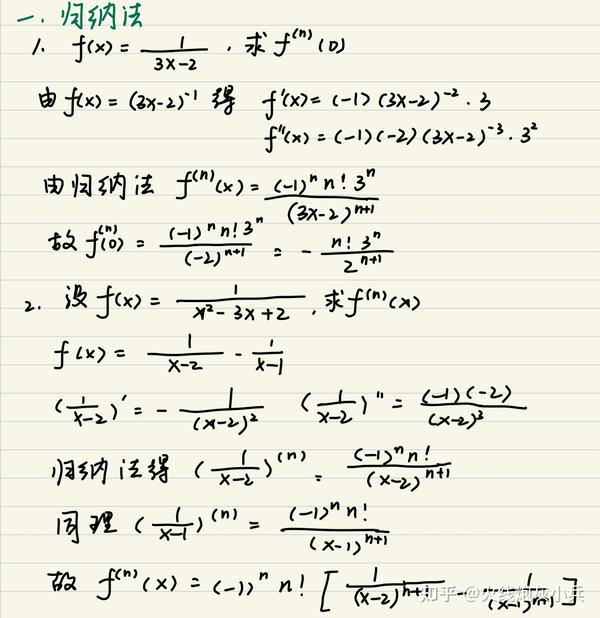 一. 归纳法
1. f(x) = 1/(3x-2) . 求 f⁽ⁿ⁾(0)
由 f(x) = (3x-2)⁻¹ 得 f'(x) = (-1)(3x-2)⁻² · 3
f''(x) = (-1)(-2)(3x-2)⁻³ · 3²
由归纳法 f⁽ⁿ⁾(x) = (-1)ⁿ n! 3ⁿ/(3x-2)ⁿ⁺¹
故 f⁽ⁿ⁾(0) = (-1)ⁿ n! 3ⁿ/(-2)ⁿ⁺¹ = - n! 3ⁿ/2ⁿ⁺¹
2. 设 f(x) = 1/(x²-3x+2) , 求 f⁽ⁿ⁾(x)
f(x) = 1/(x-2) - 1/(x-1)
(1/(x-2))' = - 1/(x-2)² (1/(x-2))'' = (-1)(-2)/(x-2)³
归纳法得 (1/(x-2))⁽ⁿ⁾ = (-1)ⁿ n!/(x-2)ⁿ⁺¹
同理 (1/(x-1))⁽ⁿ⁾ = (-1)ⁿ n!/(x-1)ⁿ⁺¹
故 f⁽ⁿ⁾(x) = (-1)ⁿ n! [1/(x-2)ⁿ⁺¹ - 1/(x-1)ⁿ⁺¹]
知乎 @火线炮灰小兵